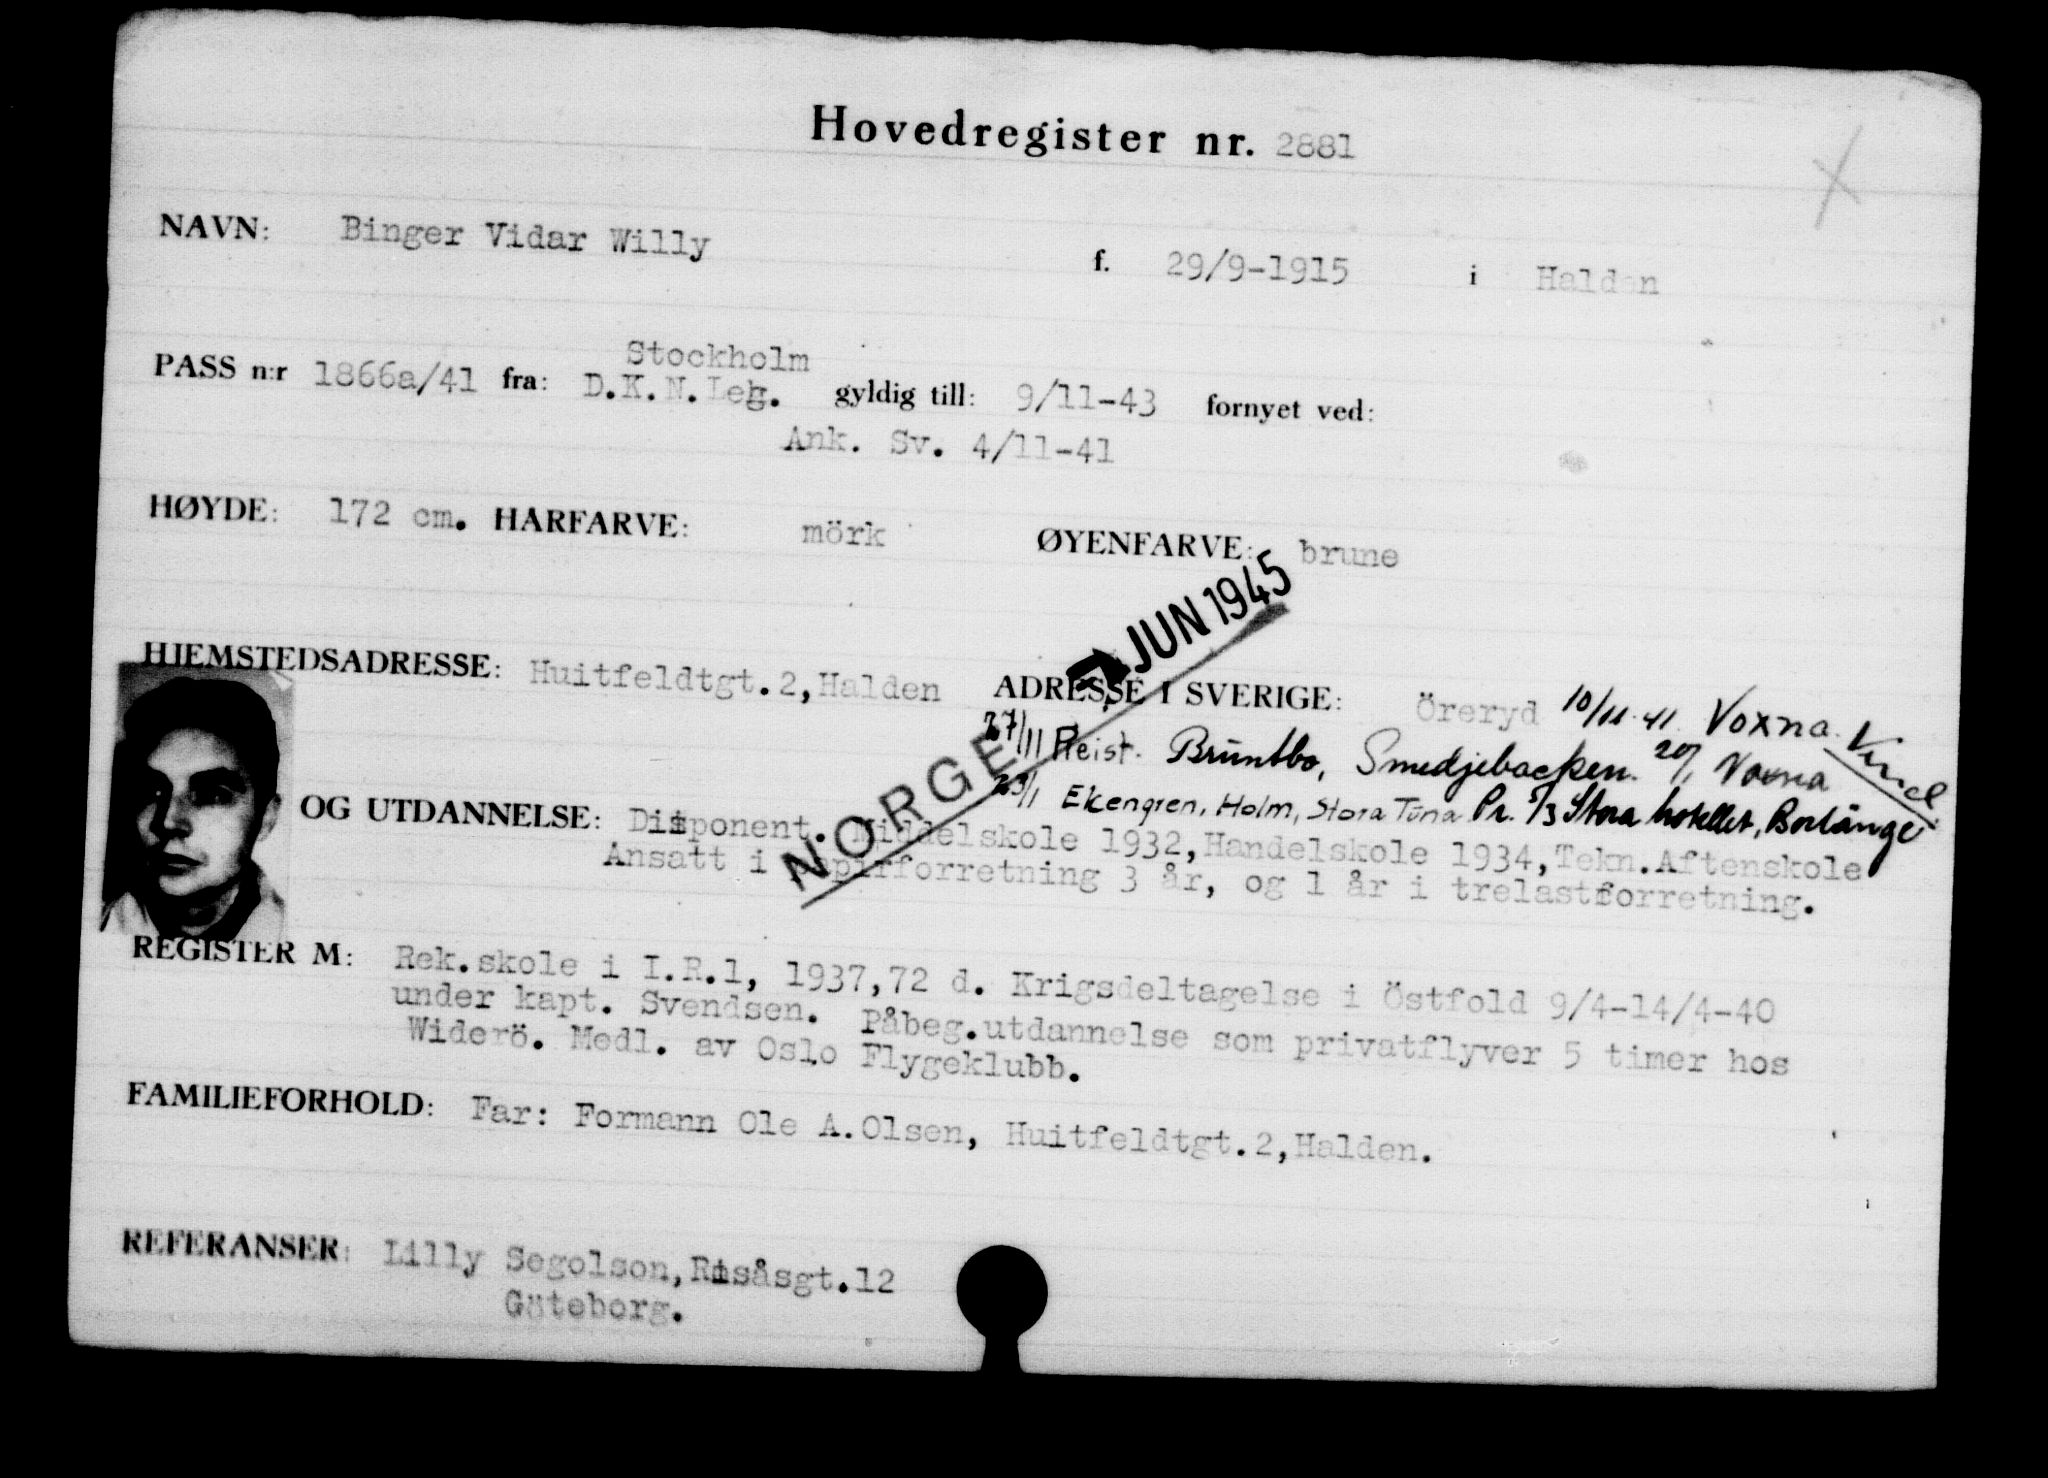 Hovedregister nr. 2881
NAVN: Binger Vidar Willy f. 29/9-1915 i Halden
Stockholm
PASS n:r 1866a/41 fra: D.K.N.Leg. gyldig till: 9/11-43 fornyet ved:
Ank. Sv. 4/11-41
HØYDE: 172 cm. HARFARVE: mörk ØYENFARVE: brune
JUN 1945
HJEMSTEDSADRESSE: Huitfeldtgt.2,Halden ADRESSE I SVERIGE: Öreryd 10/11.41 Voxna.
27/11 Reist. Bruntbo, Smedjebacken. 20/1 Voxna
23/1 Ekengren, Holm, Stora Tuna Pr. 5/3 Stora hotellet, Borlänge
NORGE
OG UTDANNELSE: Disponent. Middelskole 1932,Handelskole 1934,Tekn.Aftenskole
Ansatt i papirforretning 3 år, og 1 år i trelastforretning.
REGISTER M: Rek.skole i I.R.1, 1937,72 d. Krigsdeltagelse i Östfold 9/4-14/4-40
under kapt. Svendsen. Påbeg.utdannelse som privatflyver 5 timer hos
Widerö. Medl. av Oslo Flygeklubb.
FAMILIEFORHOLD: Far: Formann Ole A.Olsen, Huitfeldtgt.2,Halden.
REFERANSER: Lilly Segolson, Risåsgt.12
Göteborg.